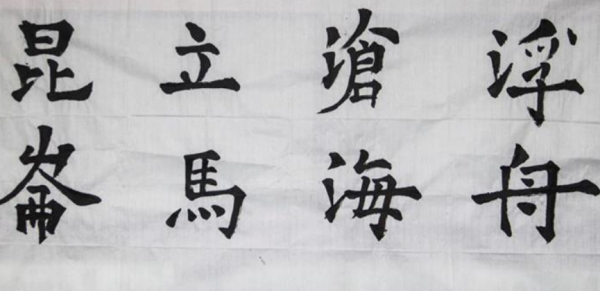 浮舟
滄海
立馬
昆崙